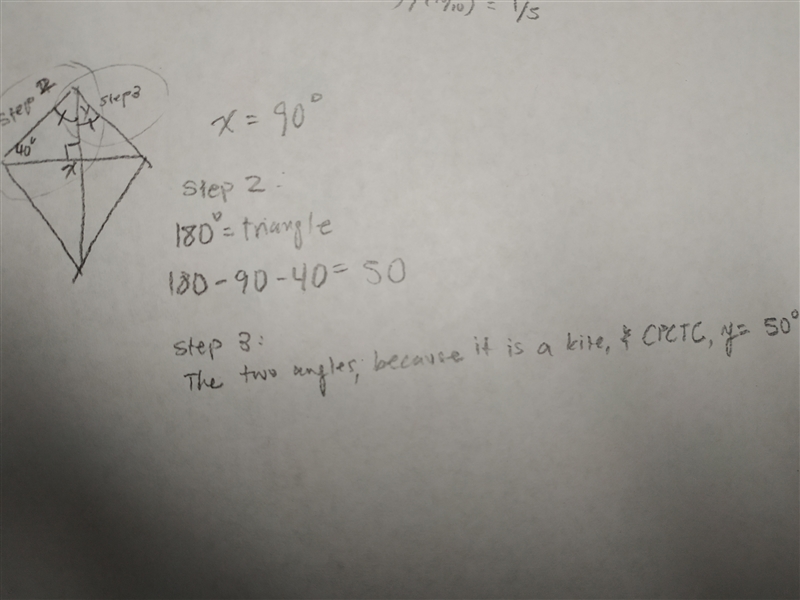 = 1/5
Step 2
Step 3
y
40°
x
x = 90°
Step 2:
180° = triangle
180 - 90 - 40 = 50
Step 3:
The two angles, because it is a kite, & CPCTC, y = 50°